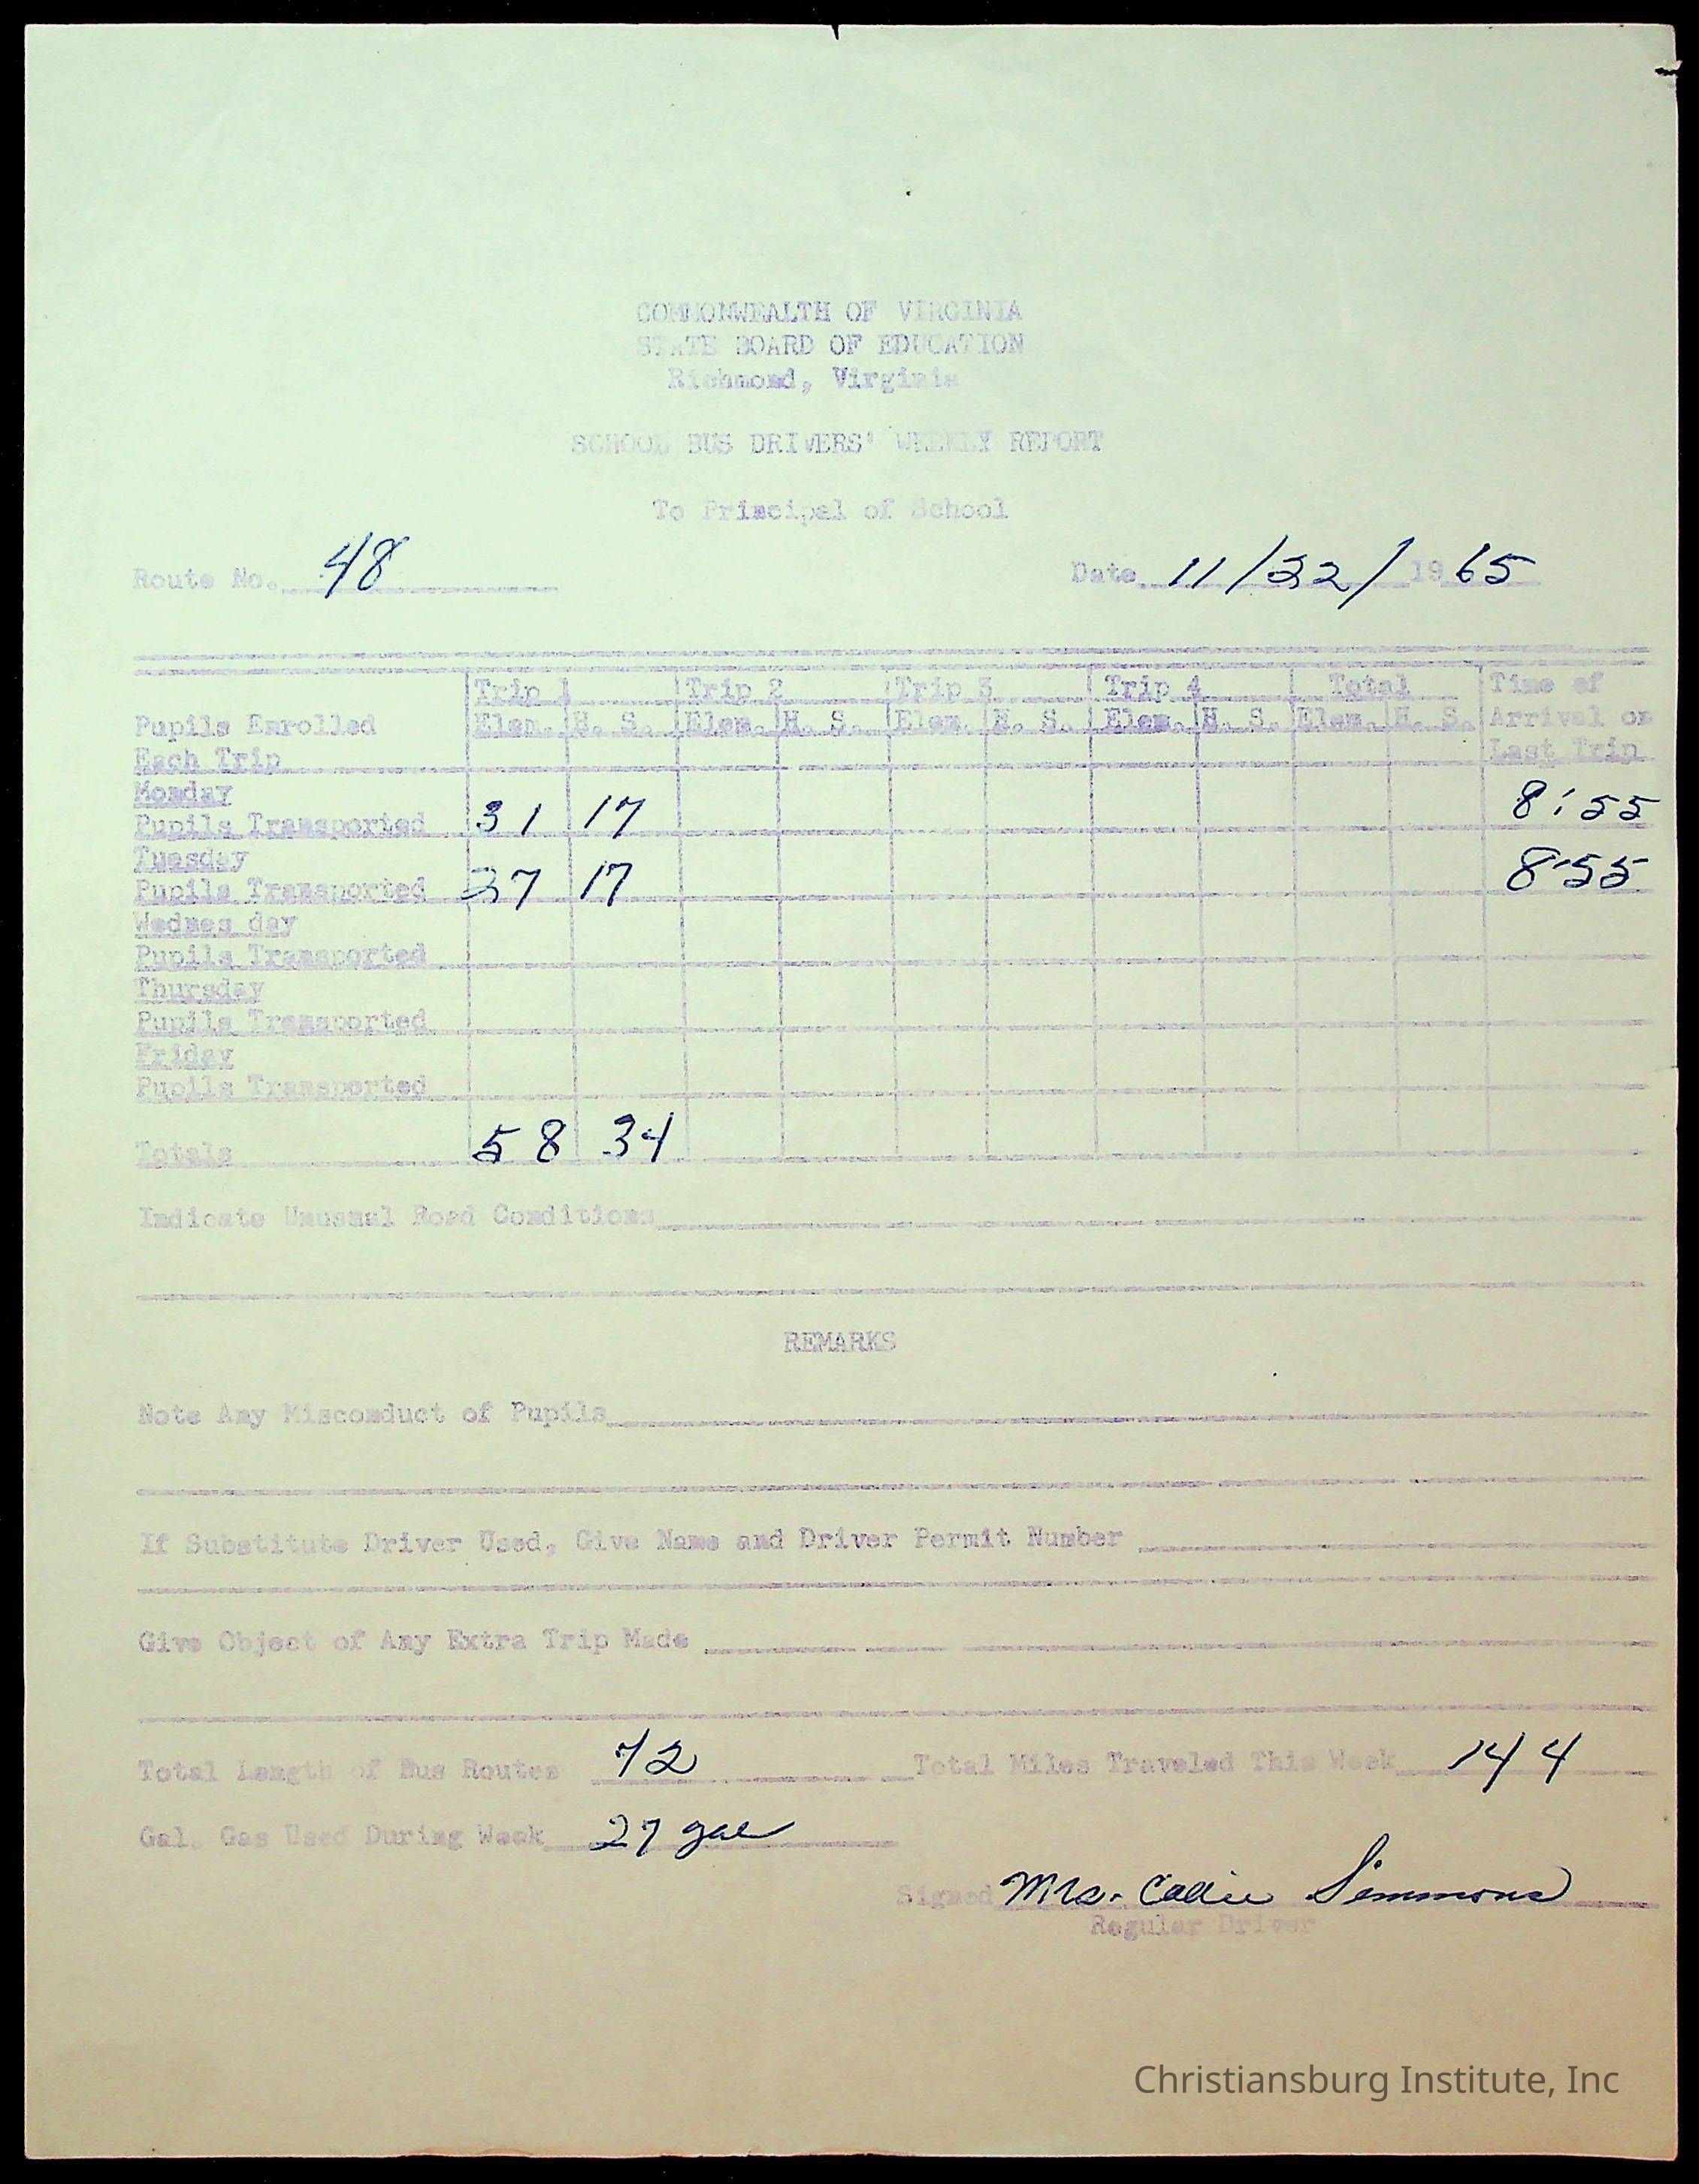 COMMONWEALTH OF VIRGINIA
STATE BOARD OF EDUCATION
Richmond, Virginia
SCHOOL BUS DRIVERS' WEEKLY REPORT
To Principal of School
Route No. 48 Date 11/22/1965
Trip 1 Trip 2 Trip 3 Trip 4 Total Time of
Pupils Enrolled Elem. H. S. Elem. H. S. Elem. H. S. Elem. H. S. Elem. H. S. Arrival on
Each Trip Last Trip
Monday
Pupils Transported 31 17 8:55
Tuesday
Pupils Transported 27 17 8:55
Wednes day
Pupils Transported
Thursday
Pupils Transported
Friday
Pupils Transported
Totals 58 34
Indicate Unusual Road Conditions
REMARKS
Note Any Misconduct of Pupils
If Substitute Driver Used, Give Name and Driver Permit Number
Give Object of Any Extra Trip Made
Total Length of Bus Routes 72 Total Miles Traveled This Week 144
Gal. Gas Used During Week 27 gal
Signed Mrs. Simmons
Regular Driver
Christiansburg Institute, Inc